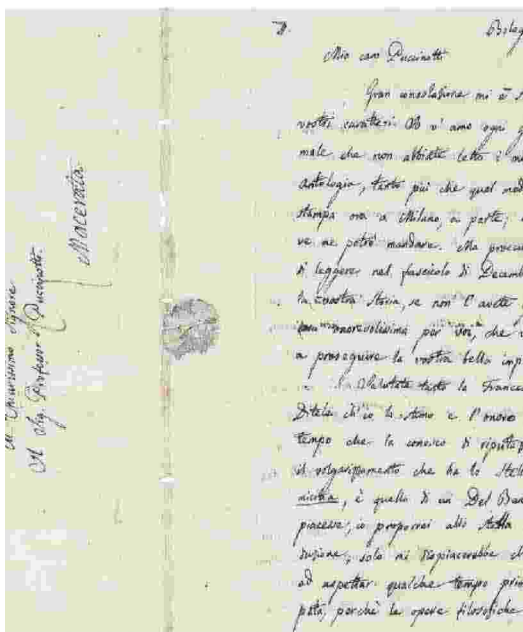 Al Chiarissimo Signore
Al Sig. Professor F. Puccinotti
Macerata
7.
Bolog
Mio caro Puccinotti
Gran consolazione mi è s
vostri caratteri. Io v'amo ogni g
male che non abbiate letto i m
Antologia, tanto più che quel
stampa ora a Milano, a parte,
ve ne potrò mandare. Ma procu
di leggere nel fascicolo di Decemb
la vostra Storia, se non l'avete
onorevolissima per voi, che
a proseguire la vostra bella imp
Salutate tanto la Frances
Ditele ch'io la stimo e l'onoro
tempo che la conosco di riputaz
il volgarizzamento che ha lo Stell
micizia, è quello di un Del Ban
piacesse, io proporrei allo Stella
duzione; solo mi dispiacerebbe ch
ad aspettar qualche tempo prim
pata, perchè le opere filosofiche